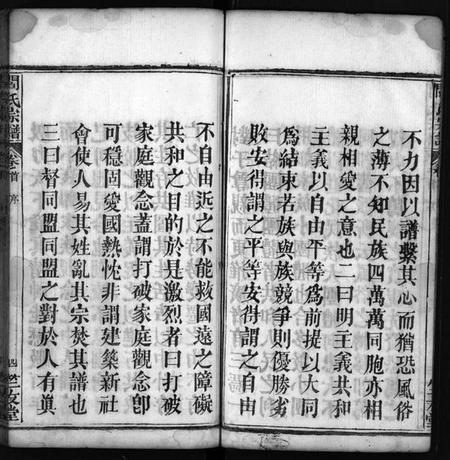 不力因以譜繫其心而猶恐風俗
之薄不知民族四萬萬同胞亦相
親相愛之意也二曰明主義共和
主義以自由平等爲前提以大同
爲結束若族與族競爭則優勝劣
敗安得謂之平等安得謂之自由
不自由近之不能救國遠之障礙
共和之目的於是激烈者曰打破
家庭觀念蓋謂打破家庭觀念卽
可穩固愛國熱忱非謂建築新社
會使人易其姓亂其宗焚其譜也
三曰督同盟同盟之對於人有眞
氏宗譜
卷首
四